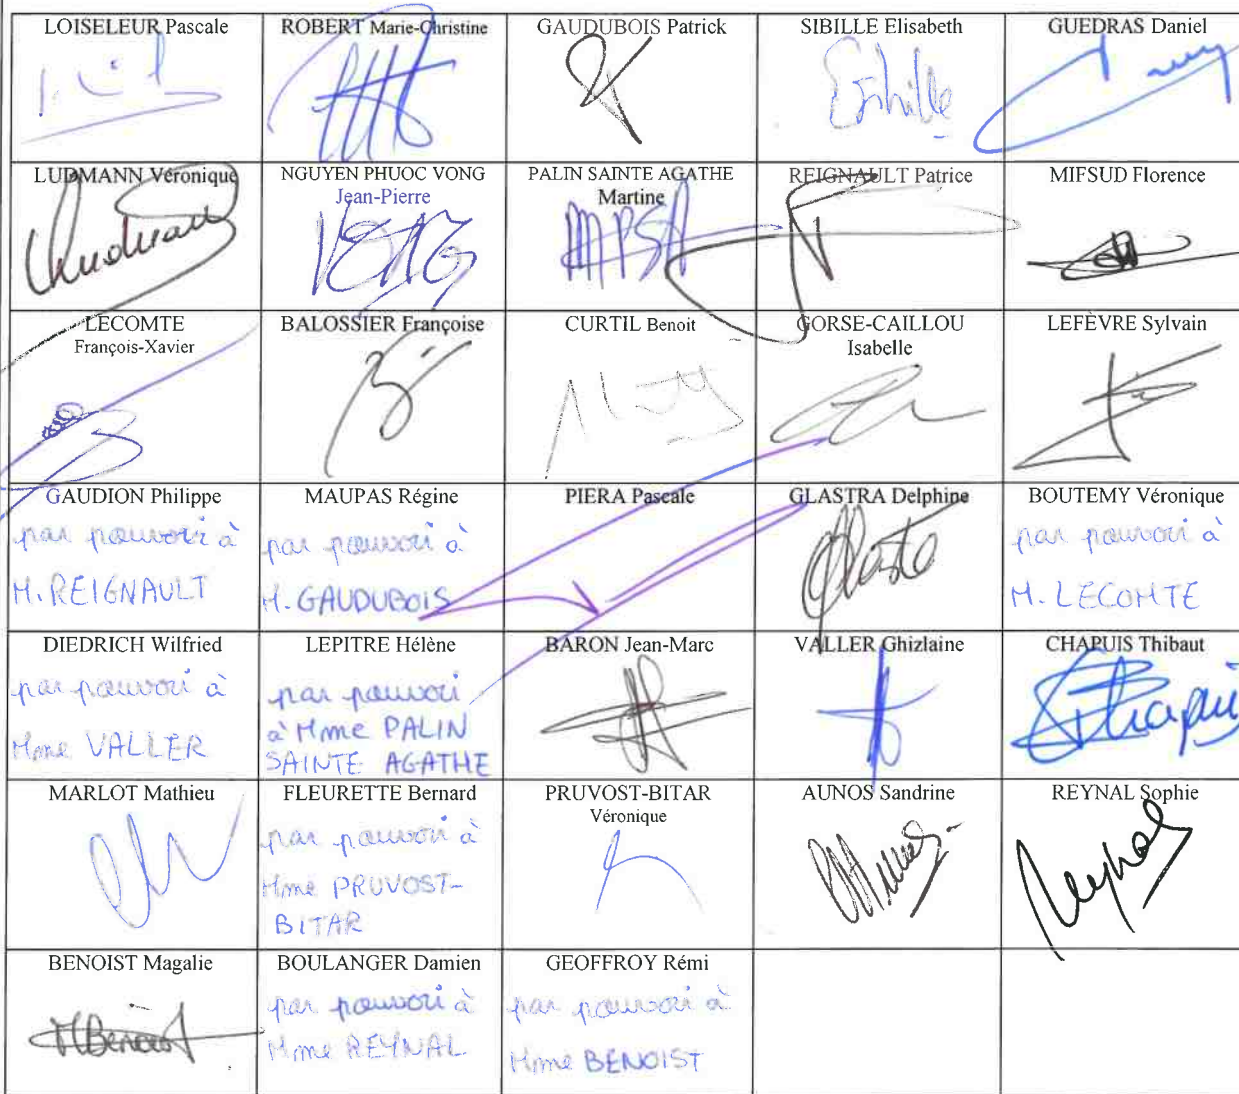 LOISELEUR Pascale
ROBERT Marie-Christine
GAUDUBOIS Patrick
SIBILLE Elisabeth
GUEDRAS Daniel
Sibille
LUDMANN Véronique
NGUYEN PHUOC VONG
Jean-Pierre
PALIN SAINTE AGATHE
Martine
REIGNAULT Patrice
MIFSUD Florence
MPSA
LECOMTE
François-Xavier
BALOSSIER Françoise
CURTIL Benoit
GORSE-CAILLOU
Isabelle
LEFÈVRE Sylvain
GAUDION Philippe
par pouvoir à
M. REIGNAULT
MAUPAS Régine
par pouvoir à
M. GAUDUBOIS
PIERA Pascale
GLASTRA Delphine
BOUTEMY Véronique
par pouvoir à
M. LECOMTE
DIEDRICH Wilfried
par pouvoir à
Mme VALLER
LEPITRE Hélène
par pouvoir
à Mme PALIN
SAINTE AGATHE
BARON Jean-Marc
VALLER Ghizlaine
CHAPUIS Thibaut
MARLOT Mathieu
FLEURETTE Bernard
par pouvoir à
Mme PRUVOST-
BITAR
PRUVOST-BITAR
Véronique
AUNOS Sandrine
REYNAL Sophie
Reynal
BENOIST Magalie
MBenoist
BOULANGER Damien
par pouvoir à
Mme REYNAL
GEOFFROY Rémi
par pouvoir à
Mme BENOIST